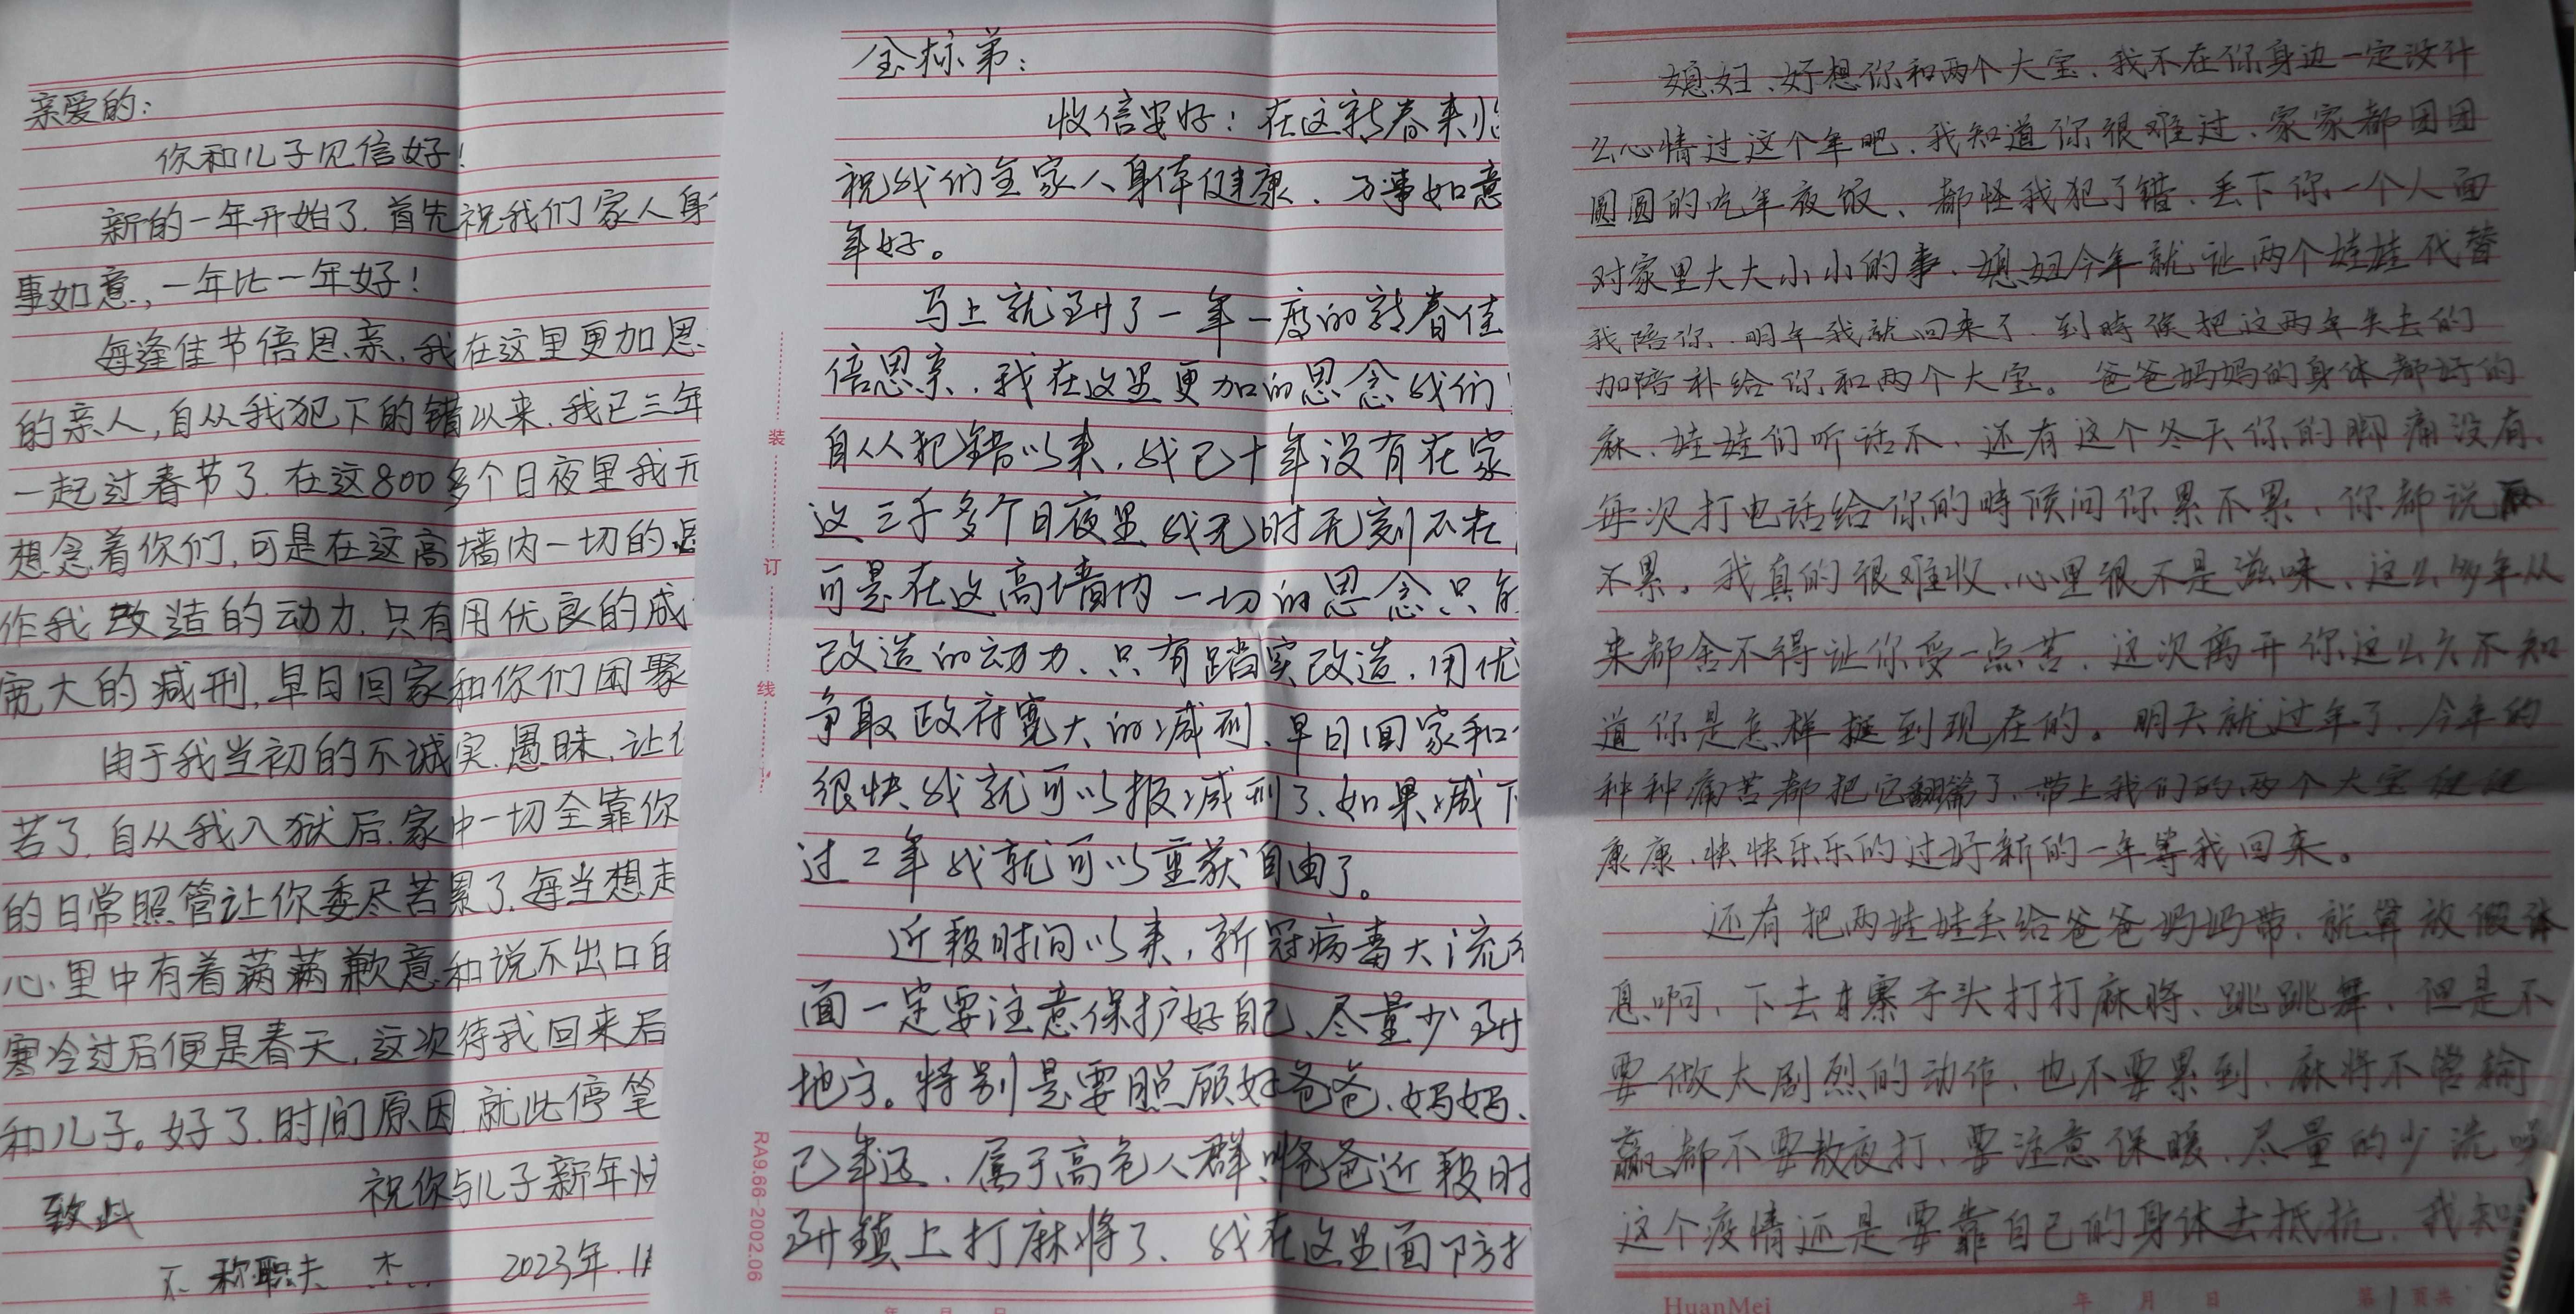 亲爱的：
你和儿子见信好！
新的一年开始了.首先祝我们家人身
事如意,一年比一年好！
每逢佳节倍思亲.我在这里更加思
的亲人,自从我犯下的错以来.我已三年
一起过春节了.在这800多个日夜里我无
想念着你们,可是在这高墙内一切的思
作我改造的动力.只有用优良的成
宽大的减刑,早日回家和你们团聚
由于我当初的不诚实.愚昧,让
苦了.自从我入狱后.家中一切全靠你
的日常照管让你委尽苦累了.每当想起
心里中有着满满歉意和说不出口自
寒冷过后便是春天,这次待我回来后
和儿子。好了.时间原因.就此停笔
祝你与儿子新年快
致此
不称职夫 杰..
2023年.1月
金标弟：
收信安好！在这新春来临
祝我们全家人身体健康、万事如意
年好。
马上就到了一年一度的新春佳
倍思亲.我在这里更加的思念我们
自从犯错以来.我已十年没有在家
这三千多个日夜里我无时无刻不在
可是在这高墙内一切的思念只能
改造的动力、只有踏实改造.用优
争取政府宽大的减刑、早日回家和
很快我就可以报减刑了、如果减下
过二年我就可以重获自由了。
近段时间以来,新冠病毒大流行
面一定要注意保护好自己、尽量少到
地方。特别是要照顾好爸爸、妈妈、
已年迈、属于高危人群.叫爸爸近段时
到镇上打麻将了、我在这里面
装
订
线
RA9.66-2002.06
年 月 日
媳妇、好想你和两个大宝、我不在你身边一定没什
么心情过这个年吧、我知道你很难过、家家都团团
圆圆的吃年夜饭、都怪我犯了错、丢下你一个人面
对家里大大小小的事、媳妇今年就让两个娃娃代替
我陪你、明年我就回来了、到時候把这两年失去的
加陪补给你和两个大宝。爸爸妈妈的身体都好的
麻、娃娃们听话不、还有这个冬天你的脚痛没有、
每次打电话给你的時候问你累不累、你都说
不累。我真的很难收、心里很不是滋味、这么多年从
来都舍不得让你受一点苦、这次离开你这么久不知
道你是怎样挺到现在的。明天就过年了、今年的
种种痛苦都把它翻篇了、带上我们的两个大宝健健
康康、快快乐乐的过好新的一年等我回来。
还有把两娃娃丢给爸爸妈妈带、就算放假休
息啊、下去寨子头打打麻将、跳跳舞、但是不
要做太剧烈的动作、也不要累到、麻将不管输
赢都不要敖夜打、要注意保暖、尽量的少流
这个疫情还是要靠自己的身体去抵抗、我知
HuanMei
年 月 日
第1页共